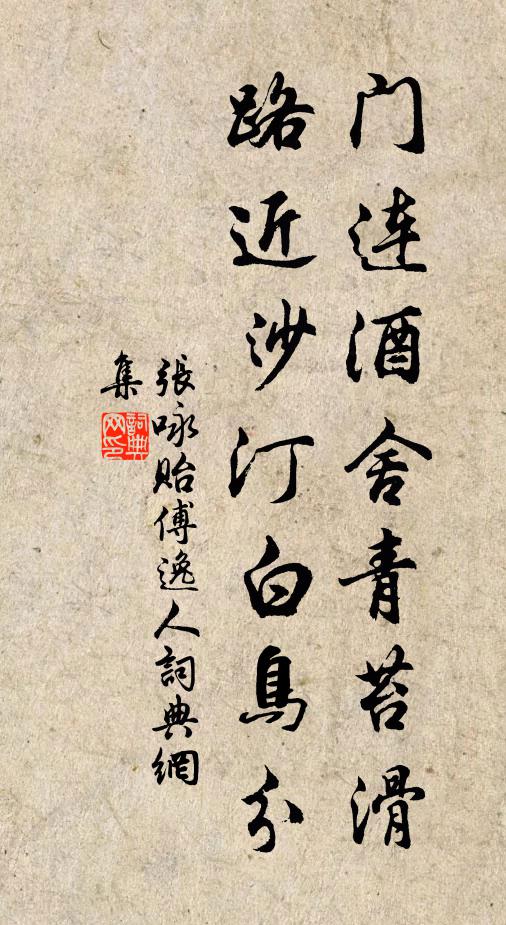 门连酒舍青苔滑
路近沙汀白鳥分
張咏贻傅逸人詞典網
集
詞典
网印